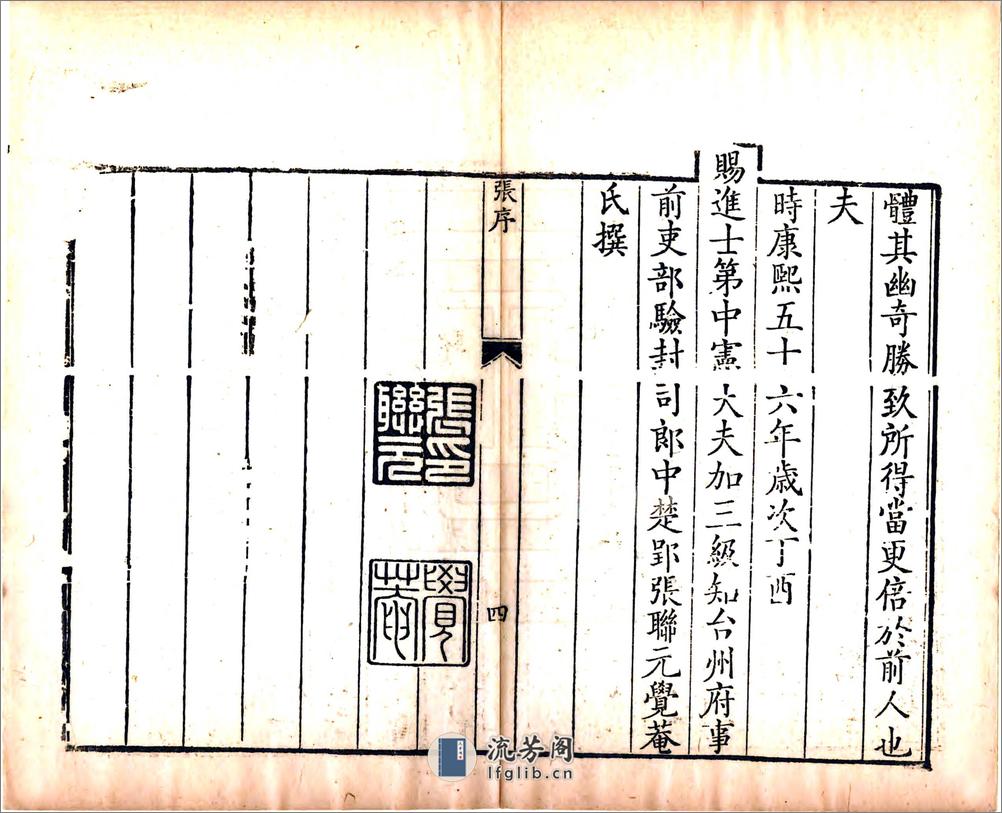 體其幽奇勝致所得當更倍於前人也
夫
時康熙五十六年歲次丁酉
賜進士第中憲大夫加三級知台州府事
前吏部驗封司郎中楚郢張聯元覺菴
氏撰
張序
四
張印聯元
覺菴
流芳阁
lfglib.cn